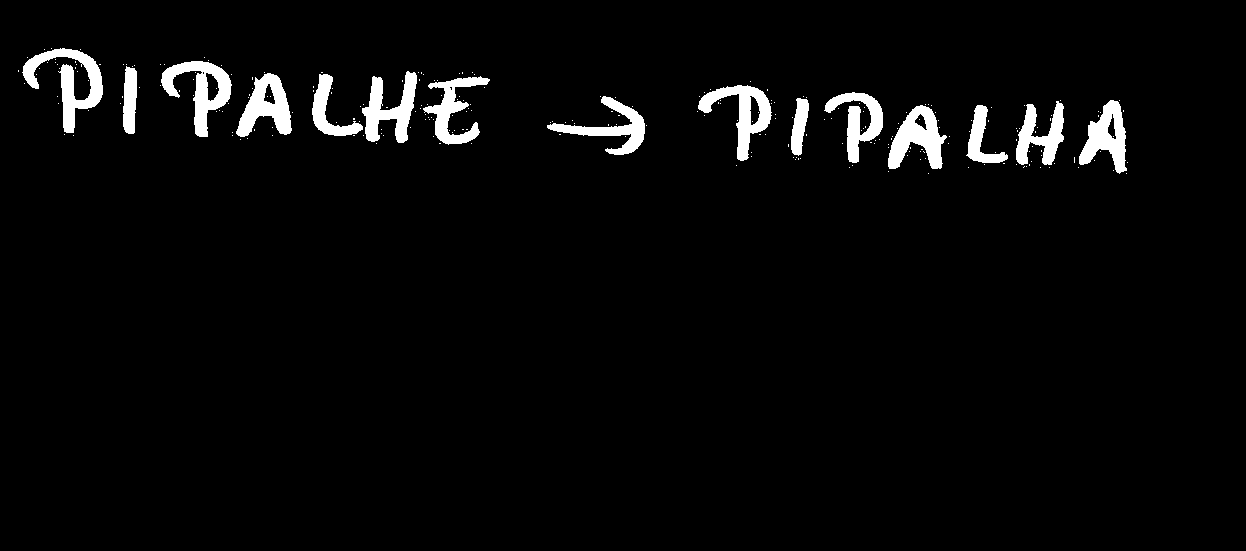 PIPALHE → PIPALHA